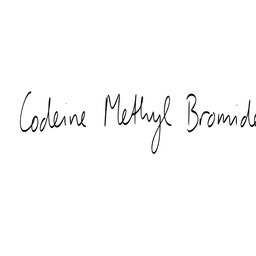 Codeine Methyl Bromide